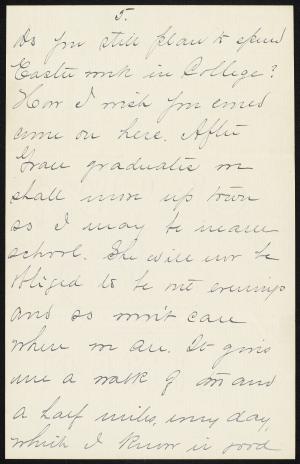 5.
Do you still plan to spend
Easter week in College?
How I wish you could
come on here. After
Grace graduates we
shall move up town
so I may be nearer
school. She will not be
obliged to be out evenings
and so won't care
where we are. It gives
me a walk of and
a half miles, every day,
which I know is good